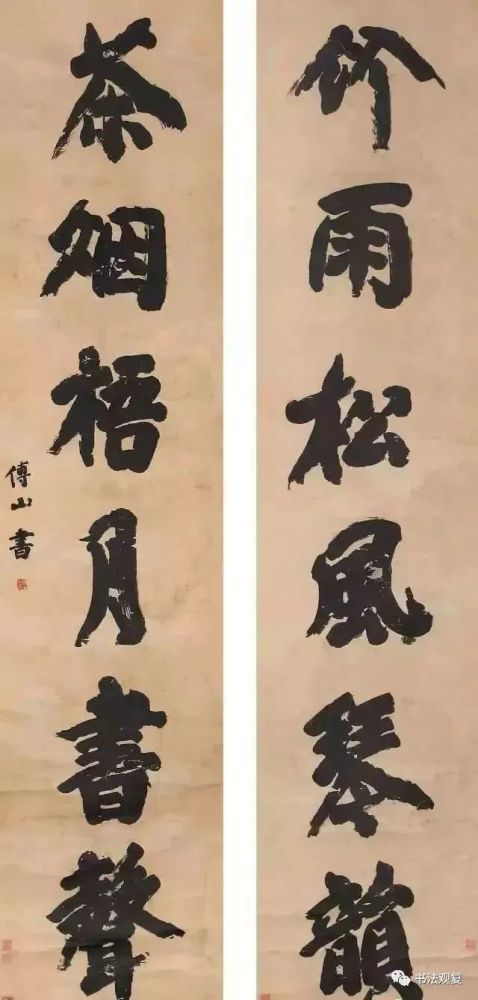 竹雨松風琴韻
茶烟梧月書聲
傅山書
书法观复